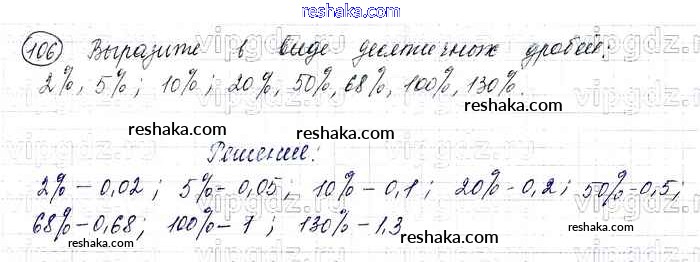 reshaka.com
106 Выразите в виде десятичных дробей:
2%, 5%; 10%; 20%, 50%, 68%, 100%, 130%.
reshaka.com reshaka.com
Решение:
2% - 0,02; 5% - 0,05; 10% - 0,1; 20% - 0,2; 50% - 0,5;
68% - 0,68; 100% - 1; 130% - 1,3
reshaka.com reshaka.com